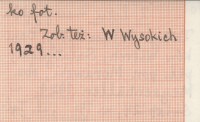 ko fot.
Zob: też: W Wysokich
1929...